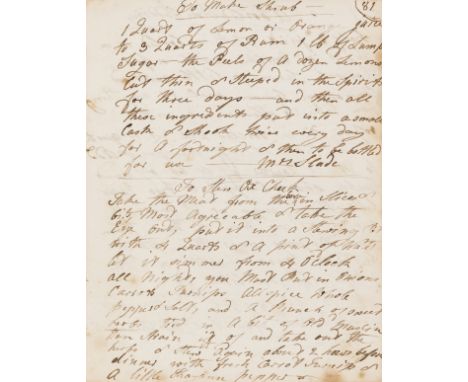 To Make Shrub
81
1 Quart of Lemon or Orange juice
to 3 Quarts of Rum 1 lb of Lump
Sugar — the Peels of A dozen Lemons
Cut thin & Steeped in the Spirits
for three days — and then all
these ingredients put into a small
Cask & Shook twice every day
for A fortnight & then to be bottled
for use — Mrs Slade
To Stew Ox Cheek
Take the Meat from the
Most Agreeable & take the
Eye out, put it into a Stewing
with 4 Quarts & A pint of
let it simmer from 4 O'Clock
all Night, you Must Put in Onions
Carrots Turnips Allspice whole
pepper & Salt, and A Bunch of sweet
herbs tied in A bit of Muslin
then Strain it of and take out the
herbs & Stew again about 2 hours before
dinner with fresh Carrot Turnip &
A little